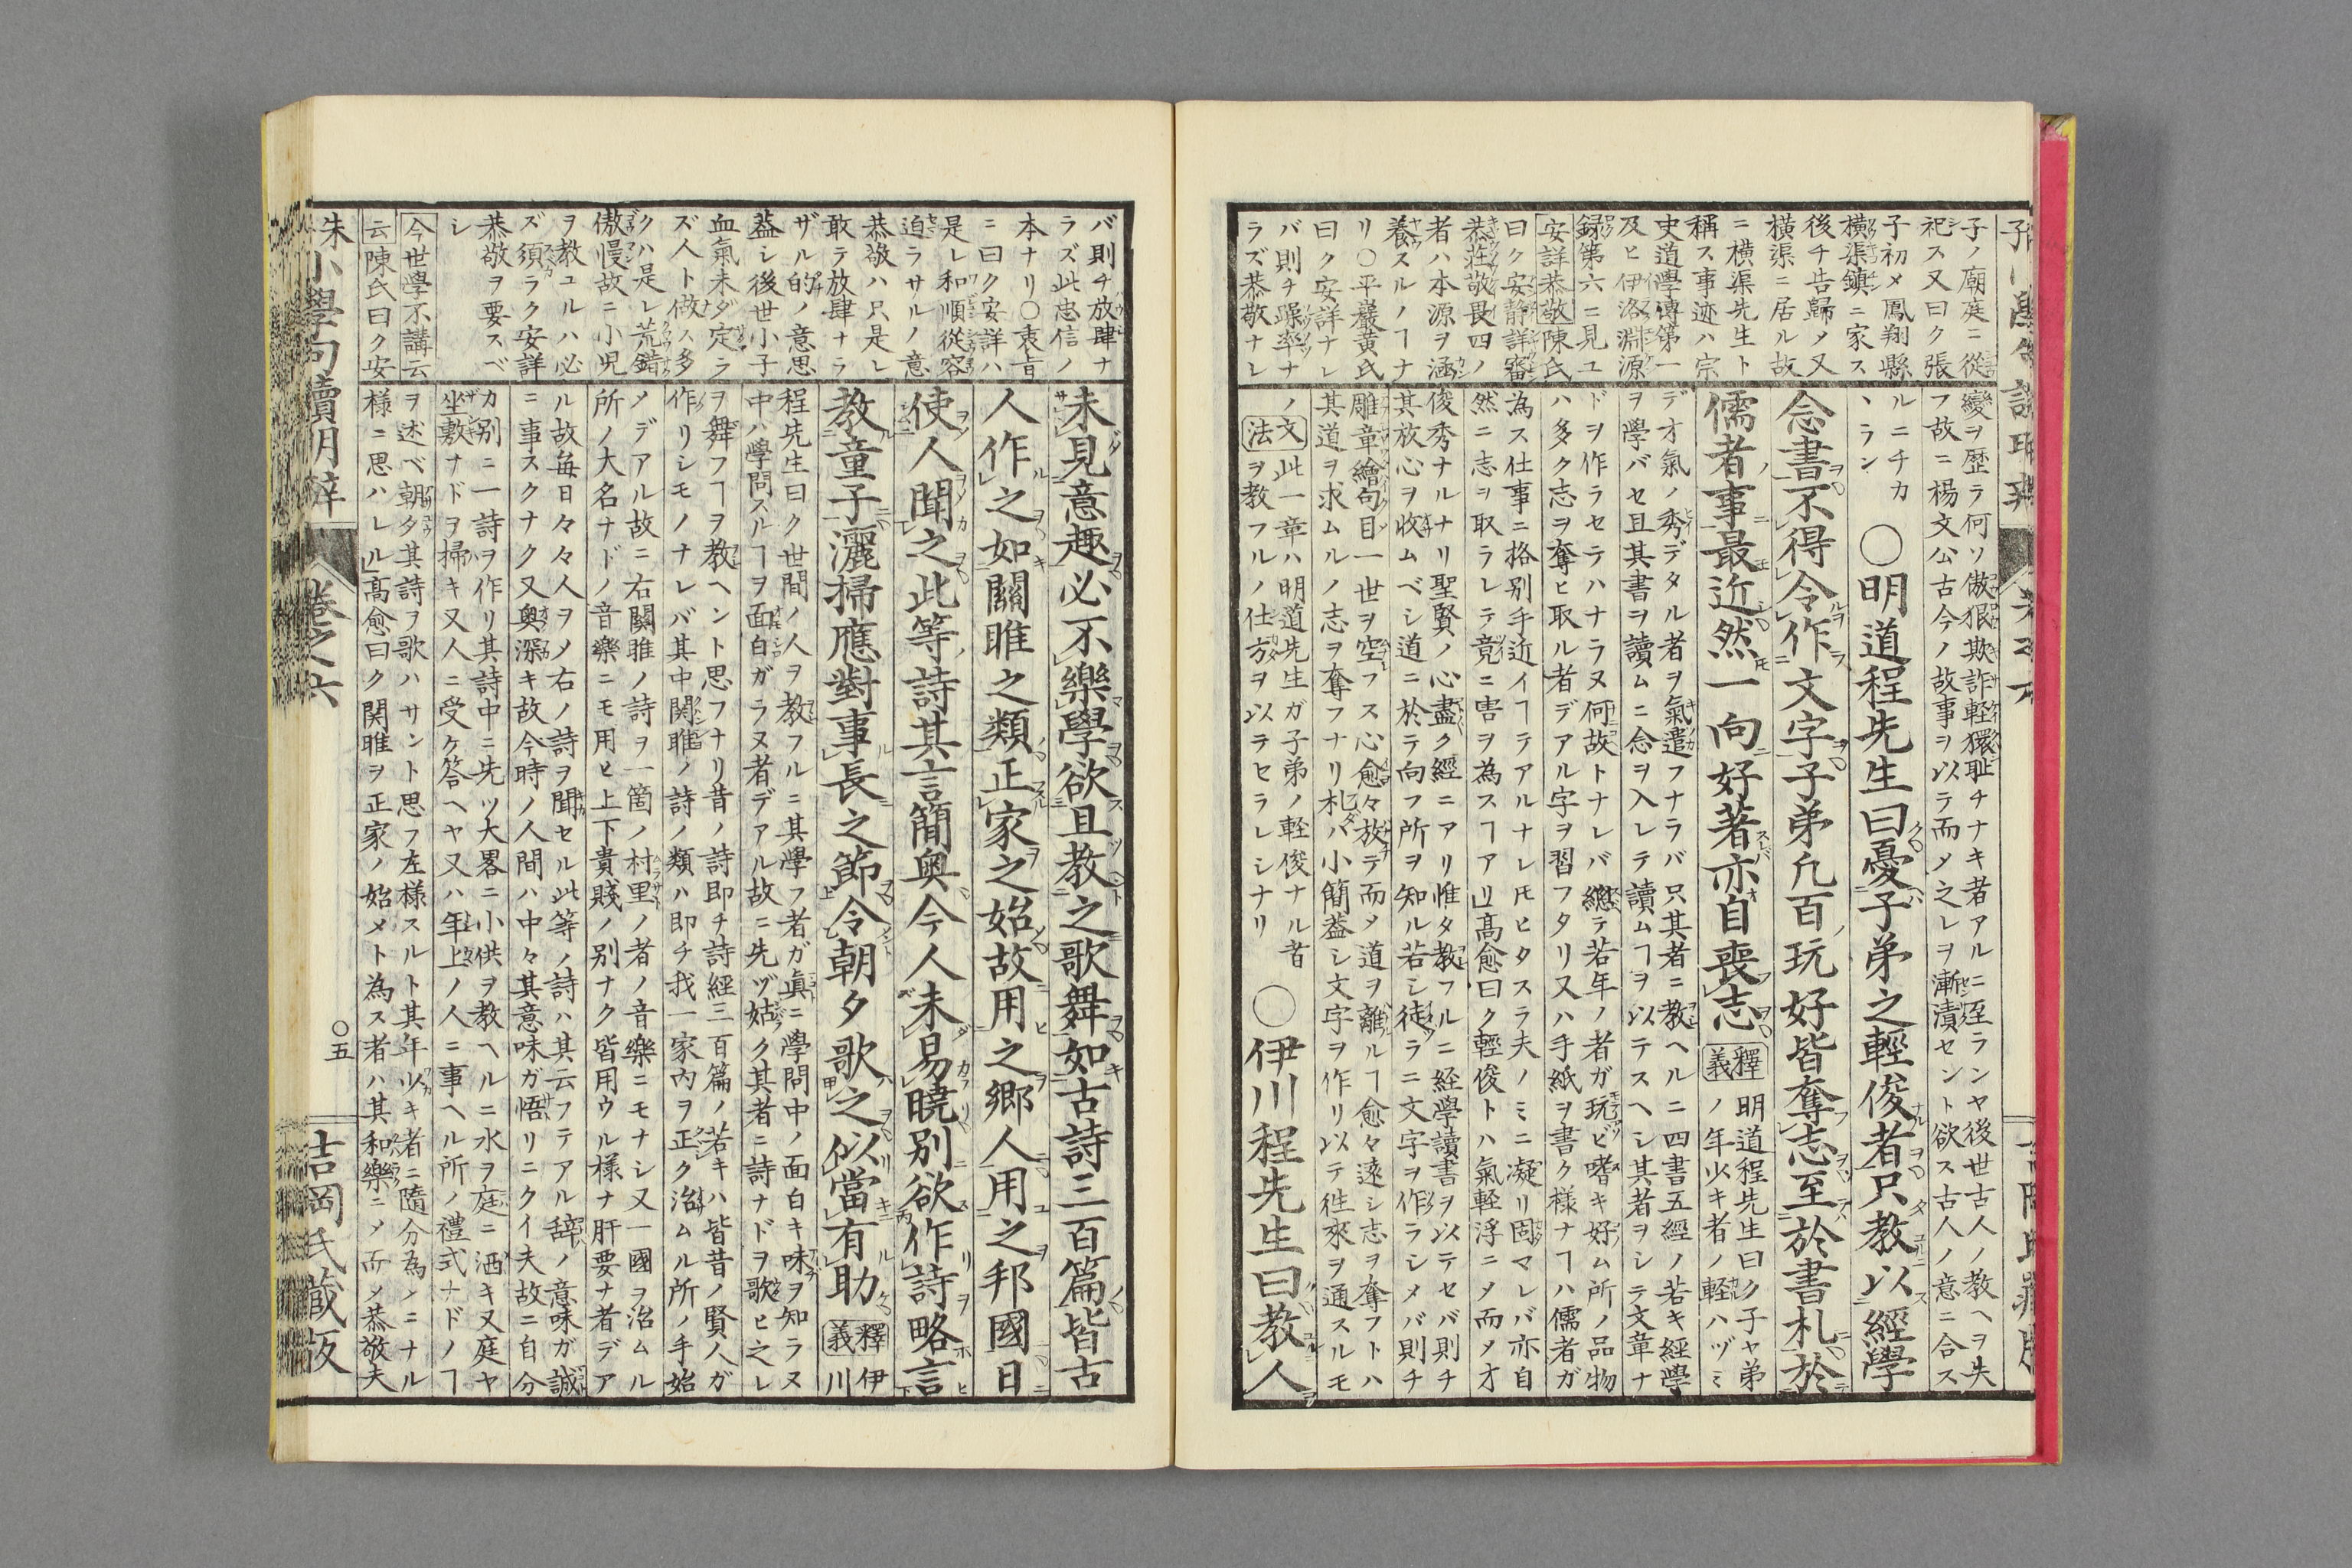 子ノ廟庭ニ從
祀ス又曰ク張
子初メ鳳翔縣
横渠鎮ニ家ス
後チ告歸メ又
横渠ニ居ル故
ニ横渠先生ト
稱ス事迹ハ宗
史道學傳第一
及ヒ伊洛淵源
録第六ニ見ユ
安詳恭敬陳氏
曰ク安静詳審
恭莊敬畏四ノ
者ハ本源ヲ涵
養スルノヿナ
リ○平巖黄氏
曰ク安詳ナレ
バ則チ躁率ナ
ラズ恭敬ナレ
變ヲ歴ラ何ソ傲狠欺詐軽獧耻チナキ者アルニ至ランヤ後世古人ノ教ヘヲ失
フ故ニ楊文公古今ノ故事ヲ以テ而メ之レヲ漸漬セント欲ス古人ノ意ニ合ス
ルニチカ
ヽラン
○明道程先生曰憂子弟之輕俊者只教以經學
念書不得令作文字子弟凢百玩好皆奪志至於書札於
儒者事最近然一向好著亦自喪志
釋義
明道程先生曰ク子ヤ弟
ノ年少キ者ノ軽ハヅミ
デオ氣ノ秀デタル者ヲ氣遣フナラバ只其者ニ教ヘルニ四書五經ノ若キ經學
ヲ學バセ且其書ヲ讀ムニ念ヲ入レテ讀ムヿヲ以テスヘシ其者ヲシテ文章ナ
ドヲ作ラセテハナラヌ何故トナレバ總テ若年ノ者ガ玩ビ嗜キ好ム所ノ品物
ハ多ク志ヲ奪ヒ取ル者デアル字ヲ習フタリ又ハ手紙ヲ書ク様ナヿハ儒者ガ
為ス仕事ニ格別手近イヿテアルナレ𪜈ヒタスラ夫ノミニ凝リ固マレバ亦自
然ニ志ヲ取ラレテ竟ニ害ヲ為スヿアリ」髙愈曰ク輕俊トハ氣軽浮ニメ而メオ
俊秀ナルナリ聖賢ノ心盡ク經ニアリ惟タ教フルニ経學讀書ヲ以テセバ則チ
其放心ヲ收ムベシ道ニ於テ向フ所ヲ知ル若シ徒ラニ文字ヲ作ラシメバ則チ
雕章繪句目一世ヲ空フス心愈々放テ而メ道ヲ離ルヿ愈々遠シ志ヲ奪フトハ
其道ヲ求ムルノ志ヲ奪フナリ札バ小簡葢シ文字ヲ作リ以テ徃來ヲ通スルモ
ノ文此一章ハ明道先生ガ子弟ノ軽俊ナル者
法ヲ教フルノ仕方ヲ以ラセラレシナリ
○伊川程先生曰教人
バ則チ放肆ナ
ラズ此忠信ノ
本ナリ○衷㫖
ニ曰ク安詳ハ
是レ和順從容
迫ラサルノ意
恭敬ハ只是レ
敢テ放肆ナラ
ザル的ノ意思
葢シ後世小子
血氣未ダ定ラ
ズ人ト做ス多
クハ是レ荒錯
傲慢故ニ小児
ヲ教ユルハ必
ズ須ラク安詳
恭敬ヲ要スベ
シ
今世學不講云
云陳氏曰ク安
未見意趣必不樂學欲且教之歌舞如古詩三百篇皆古
人作之如關雎之類正家之始故用之郷人用之邦國日
使人聞之此等詩其言簡奥今人未易曉別欲作詩略言
教童子灑掃應對事長之節令朝夕歌之似當有助
釋義
伊川
程先生曰ク世間ノ人ヲ教フルニ其學フ者ガ眞ニ學問中ノ面白キ味ヲ知ラヌ
中ハ學問スルヿヲ面白ガラヌ者デアル故ニ先ヅ姑ク其者ニ詩ナドヲ歌ヒ之レ
ヲ舞フヿヲ教ヘント思フナリ昔ノ詩即チ詩經三百篇ノ若キハ皆昔ノ賢人ガ
作リシモノナレバ其中関雎ノ詩ノ類ハ即チ我一家内ヲ正ク治ムル所ノ手始
メデアル故ニ右關雎ノ詩ヲ一箇ノ村里ノ者ノ音樂ニモナシ又一國ヲ治ムル
所ノ大名ナドノ音樂ニモ用ヒ上下貴賤ノ別ナク皆用ウル様ナ肝要ナ者デア
ル故毎日々々人ヲノ右ノ詩ヲ聞セル此等ノ詩ハ其云フテアル辞ノ意味ガ誠
ニ事スクナク又奥深キ故今時ノ人間ハ中々其意味ガ悟リニクイ夫故ニ自分
カ別ニ一詩ヲ作リ其詩中ニ先ツ大畧ニ小供ヲ教ヘルニ水ヲ庭ニ洒キ又庭ヤ
坐敷ナドヲ掃キ又人ニ受ケ答ヘヤ又ハ年上ノ人ニ事ヘル所ノ禮式ナドノヿ
ヲ述ベ朝夕其詩ヲ歌ハサント思フ左様スルト其年少キ者ニ隨分為ノニナル
様ニ思ハレル」髙愈曰ク関雎ヲ正家ノ始メト為ス者ハ其和樂ニメ而メ恭敬夫
朱小學句讀明辞
卷之六
○五
吉岡氏藏板